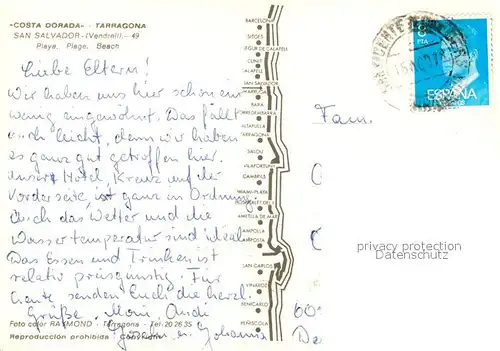 «COSTA DORADA» - TARRAGONA
SAN SALVADOR - (Vendrell). - 49
Playa. Plage. Beach
Liebe Eltern!
Wir haben uns hier schon ein
wenig eingewöhnt. Das fällt
auch leicht, denn wir haben
es ganz gut getroffen hier.
Unser Hotel, Kreuz auf der
Vorderseite, ist ganz in Ordnung
Auch das Wetter und die
Wassertemperatur sind ideal.
Das Essen und Trinken ist
relativ preisgünstig. Für
heute senden Euch die herzl.
Grüße
u. Johanna
Foto color RAYMOND - Tarragona - Tel. 20 26 35
Reproducción prohibida - Copyright
BARCELONA
SITGES
CUNIT
CALAFELL
SAN SALVADOR
BARA
TORREDEMBARRA
ALTAFULLA
TARRAGONA
SALOU
VILAFORTUNY
CAMBRILS
MIAMI-PLAYA
HOSPITALET DEL I.
AMETLLA DE MAR
AMPOLLA
AMPOSTA
SAN CARLOS
VINAROZ
BENICARLO
PEÑISCOLA
PTA
ESPAÑA
CORREOS
Fam.
privacy protection
Datenschutz
600
De